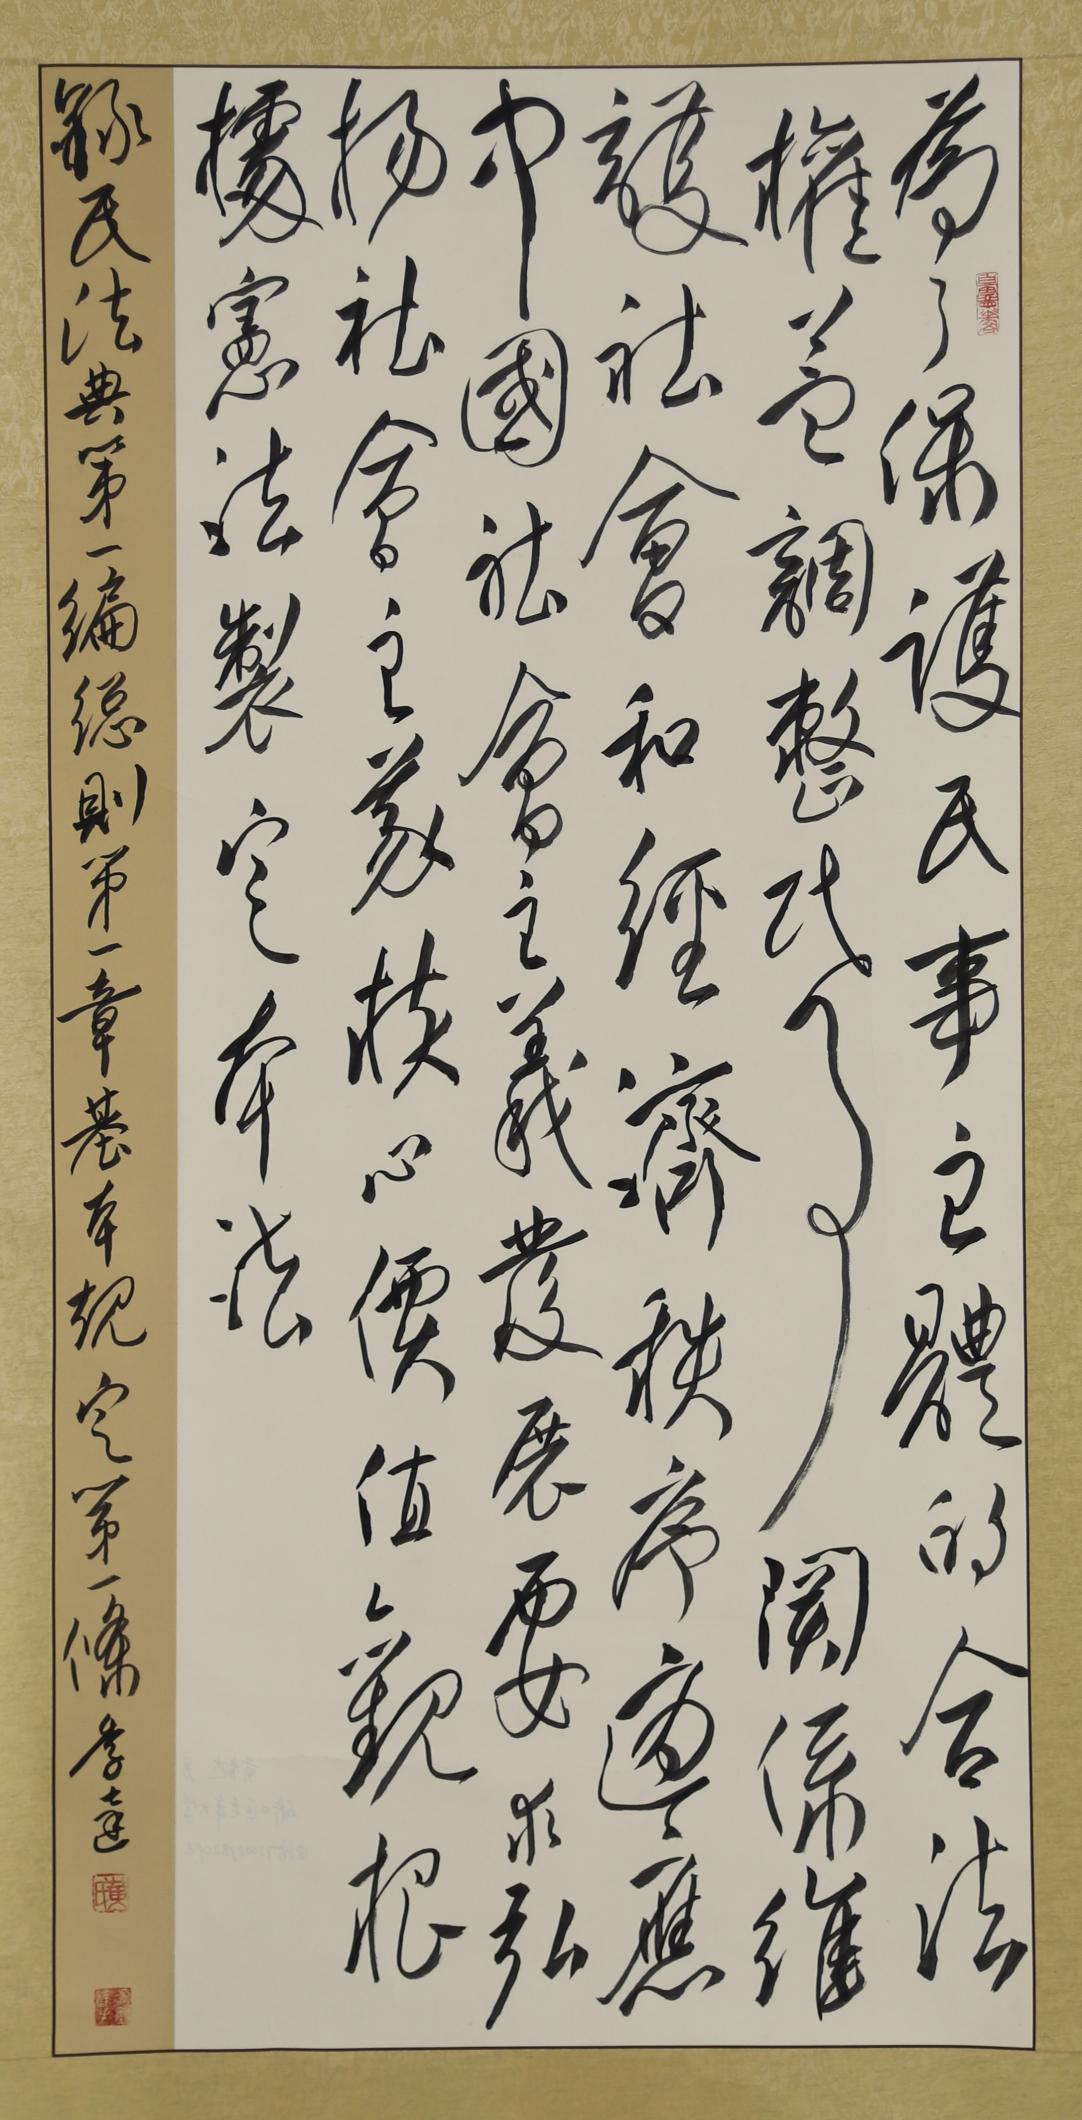 為了保護民事主體的合法
權益調整民事關係維
護社會和經濟秩序適應
中國社會主義發展要求弘
揚社會主義核心價值觀根
據憲法製定本法
錄民法典第一編總則第一章基本規定第一條 李達